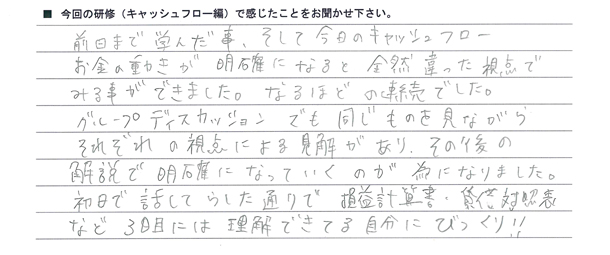 ■ 今回の研修（キャッシュフロー編）で感じたことをお聞かせ下さい。
前日まで学んだ事、そして今日のキャッシュフロー
お金の動きが明確になると全然違った視点で
みる事ができました。なるほどの連続でした。
グループディスカッションでも同じものを見ながら
それぞれの視点による見解があり、その後の
解説で明確になっていくのが為になりました。
初日で話してらした通りで損益計算書・貸借対照表
など3日目には理解できてる自分にびっくり!!